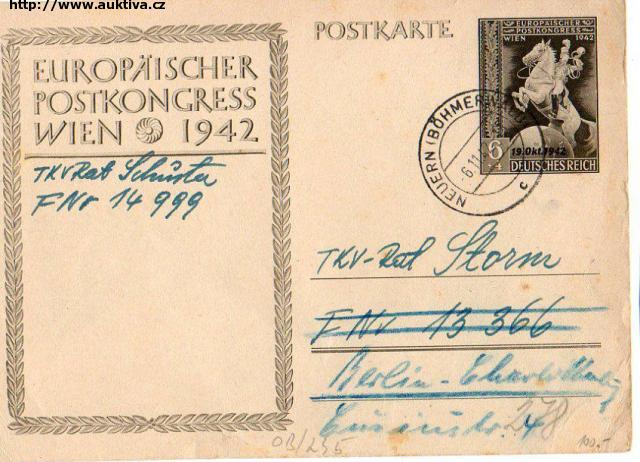 http://www.auktiva.cz
EUROPÄISCHER
POSTKONGRESS
WIEN 1942
TKVRat Schuster
FNr 14 999
POSTKARTE
EUROPÄISCHER
POSTKONGRESS
WIEN 1942
6
19.Okt.1942
DEUTSCHES REICH
NEUERN (BÖHMERW
6.11
c
TKV-Rat Storm
FNr 13 366
Berlin-Charlottenburg
278
OB/245
100,-